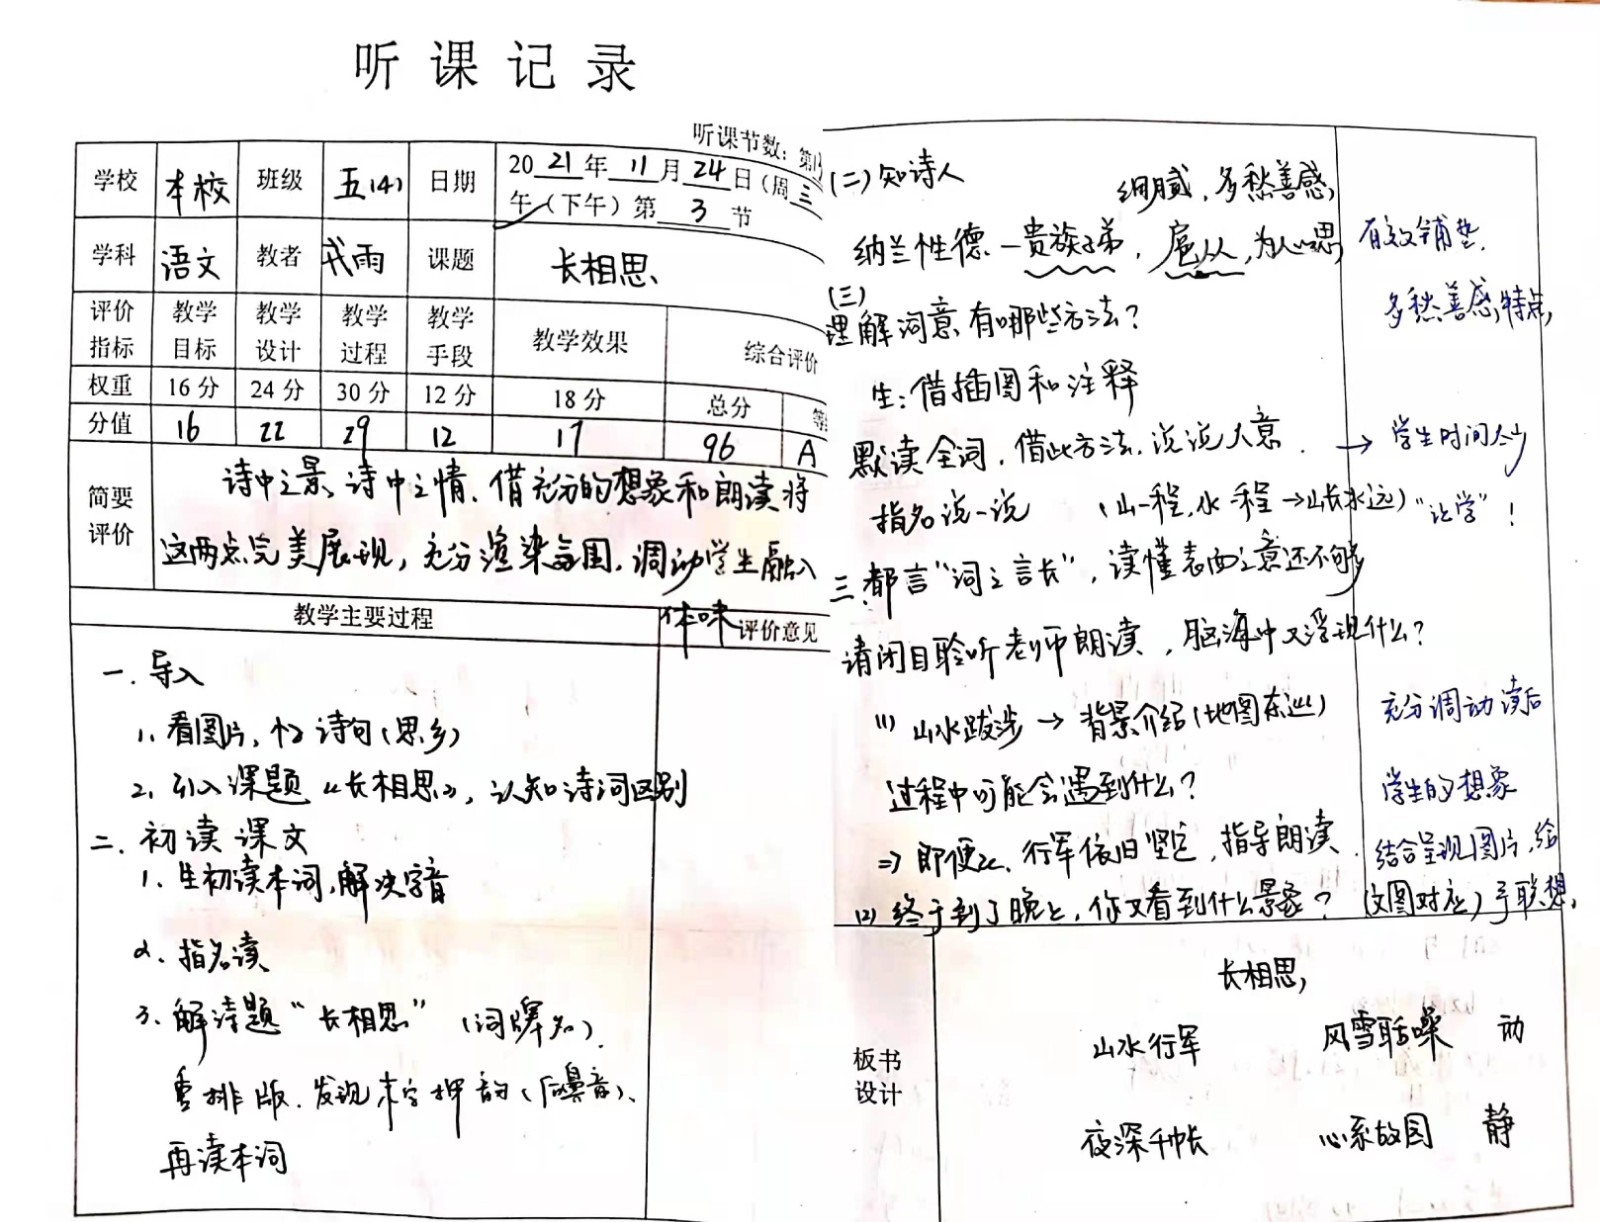 听课记录
听课节数：第
学校 本校 班级 五(4) 日期 2021年11月24日(周三
午(下午)第3节
学科 语文 教者 戎雨 课题 长相思
评价指标 教学目标 教学设计 教学过程 教学手段 教学效果 综合评价
权重 16分 24分 30分 12分 18分 总分
分值 16 22 29 12 17 96 A
简要评价 诗中之景、诗中之情、借充分的想象和朗读将
这两点完美展现，充分渲染氛围，调动学生融入
体味
教学主要过程 评价意见
一. 导入
1. 看图片，忆诗句(思乡)
2. 引入课题《长相思》，认知诗词区别
二. 初读课文
1. 生初读本词，解决字音
2. 指名读
3. 解诗题“长相思”(词牌名).
重排版. 发现末字押韵(后鼻音)、
再读本词
(二)知诗人
细腻，多愁善感，
纳兰性德—贵族子弟，扈从，为人心思
有效铺垫.
多愁善感特点,
(三)
理解词意有哪些方法？
生：借插图和注释
默读全词，借此方法，说说大意. → 学生时间太少
指名说一说 (山一程，水一程→山长水远) “让学”！
三. 都言“词之言长”，读懂表面之意还不够
请闭目聆听老师朗读，脑海中又浮现什么？
(1) 山水跋涉 → 背景介绍(地图东巡) 充分调动读后
过程中可能会遇到什么？ 学生的想象
⇒ 即便如此，行军依旧坚定，指导朗读. 结合呈现图片，给
(2) 终于到了晚上，你又看到什么景象？ (文图对应)予联想,
板书设计
长相思,
山水行军 风雪聒噪 动
夜深千帐 心系故园 静